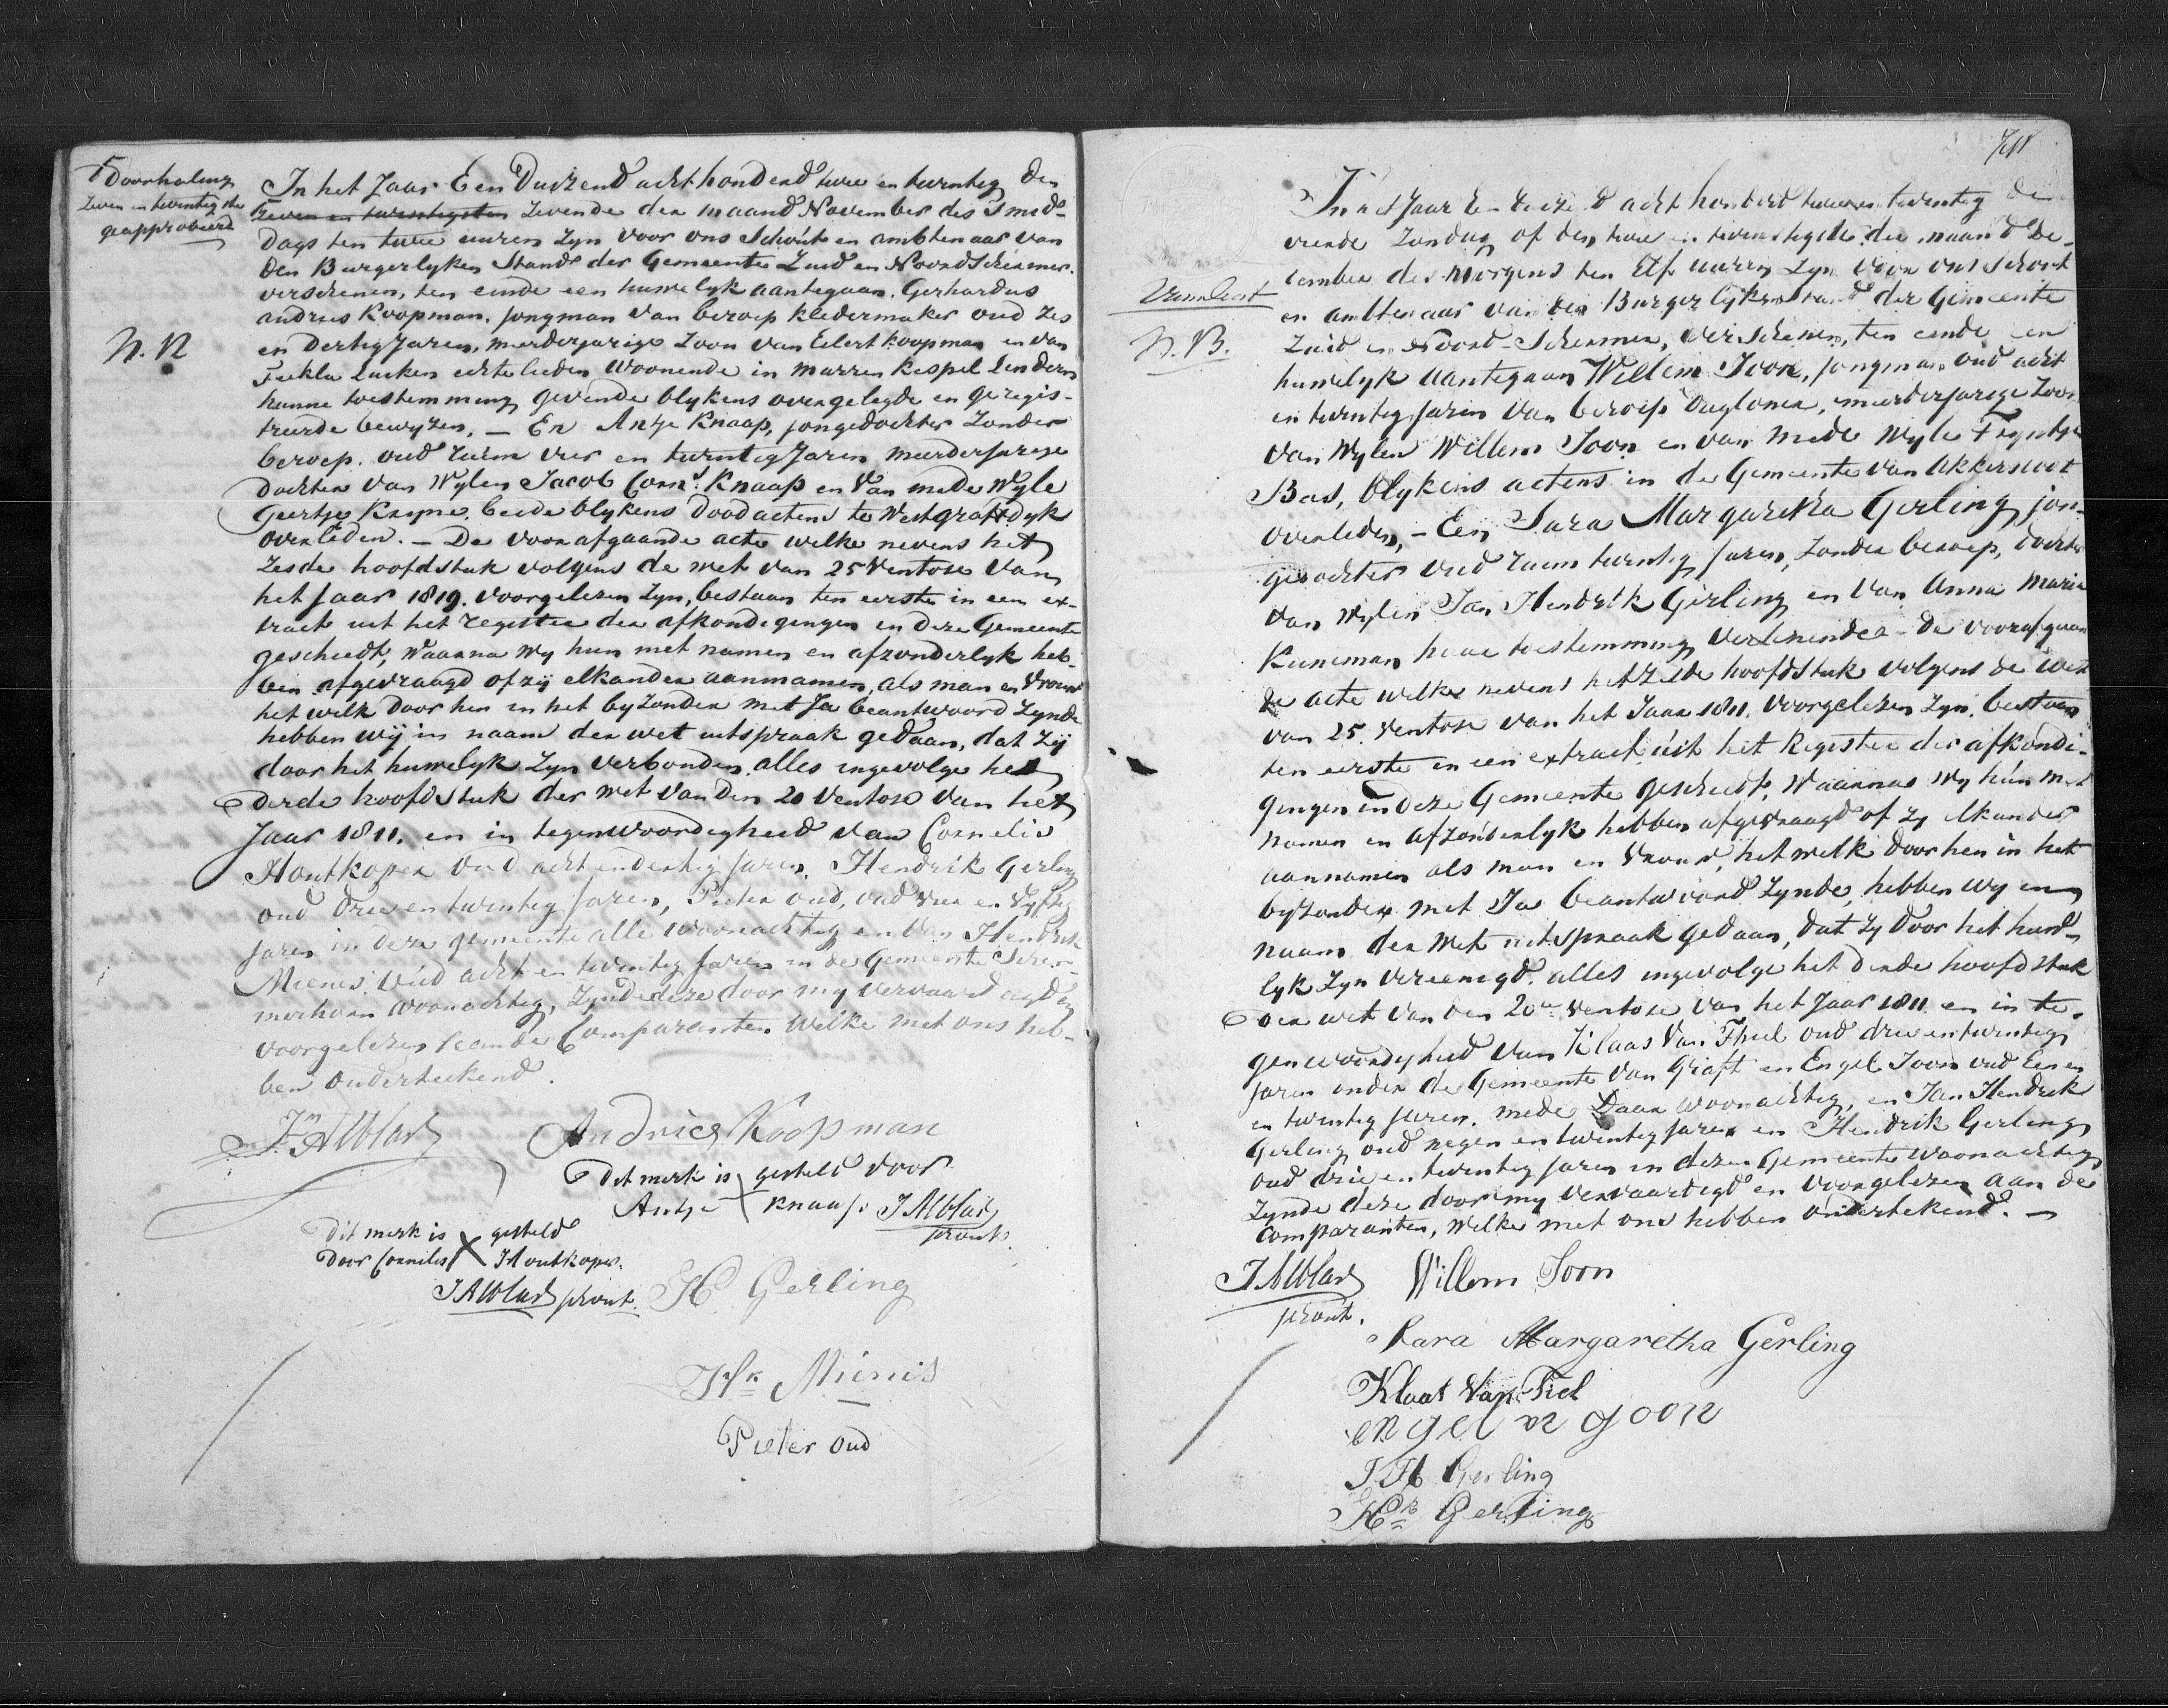 Doorhaling
Zeven en twintigste
geapprobeerd
N. 12
In het Jaar Een Duizend acht honderd twee en twintig den
Zeven en twintigsten Zevende der maand November des Smid-
dags ten twee uuren Zyn voor ons Schout en ambtenaar van
den Burgerlyken Stand der Gemeente Zuid en Noord Schermer.
verschenen, ten einde een huwelyk aantegaan. Gerhardus
andries Koopman. jongman van beroep kledermaker oud Zes
en Dertig Jaren, meerderjarige Zoon van Eilert Koopman en van
Lucken echte lieden woonende in Marren Kespel Lendern
hunne toestemming gevende blykens overgelegde en geregis-
treerde bewyzen, — En Antje Knaap, jongedochter Zonder
beroep. oud ruim vier en twintig Jaren meerderjarige
dochter van Wylen Jacob Corns. Knaap en Van mede Wyle
Geertje Kryne. beide blykens dood actens te Westgraftdyk
overleden. — De voorafgaande acte welke nevens het
Zesde hoofdstuk volgens de wet van 25 Ventose van
het Jaar 1819. voorgelezen Zyn, bestaan ten eerste in een ex-
tract uit het register der afkondigingen in deze Gemeente
geschiedt, Waarna Wy hun met namen en afzonderlyk heb-
ben afgevraagd of zij elkander aannamen, als man en Vrouw
het welk door hen in het byzonder met Ja beantwoord Zynde
hebben wij in naam der wet uitspraak gedaan, dat Zij
door het huwelyk Zyn verbonden. alles ingevolge het
derde hoofdstuk der wet van den 20 Ventose van het
Jaar 1811. en in tegenwoordigheid van Cornelis
Houtkoper Oud acht en dertig Jaren, Hendrik Gerling
oud Drie en twintig Jaren, Pieter oud, oud vier en Vyftig
Jaren in deze gemeente alle woonachtig en Van Hendrik
Mienis Oud acht en twintig Jaren in de Gemeente Scher-
merhorn woonachtig, Zynde deze door my vervaardigd en
voorgelezen aan de Comparanten welke met ons heb-
ben Onderteekend.
Jn Alblas
Andries Koopman
Dit merk is X gesteld door
Antje Knaap. J Alblas
schout.
Dit merk is X gesteld
Door Cornelis Houtkoper.
J Alblas schout.
H Gerling
Hk Mienis
Pieter Oud
N. 13.
In het Jaar Een duizend acht honderd twee en twintig den
vierde Zondag of den twee en twintigste der maand De-
cember des Morgens ten Elf uuren Zyn voor ons Schout
en ambtenaar van den Burgerlyken stand der Gemeente
Zuid en Noord Schermer, verschenen, ten einde een
huwelyk aantegaan Willem Joon, jongman oud acht
en twintig Jaren van beroep dagloner, meerderjarige Zoon
van Wylen Willem Joon en van mede Wyle Tryntje
Bas, blykens actens in de Gemeente van Akkersloot
overleden, — En Sara Margaretha Gerling jon-
gedochter oud ruim twintig Jaren, Zonder beroep, dochter
van wylen Jan Hendrik Gerling en van Anna Maria
Kuneman hare toestemming verlenende — de voorafgaan
de acte welke nevens het Zesde hoofdstuk volgens de Wet
van 25 Ventose van het Jaar 1811. voorgelezen Zyn. bestaan
ten eerste in een extract uit het Register der afkondi-
gingen in deze Gemeente geschiedt, Waarna Wy hun met
namen en afzonderlyk hebben afgevraagd of Zy elkander
aannamen als man en Vrouw, het welk door hen in het
byzonder met Ja beantwoord Zynde, hebben Wy in
naam der Wet uitspraak gedaan, dat Zy door het huwe-
lyk Zyn vereenigd. alles ingevolge het derde hoofdstuk
der wet van den 20e Ventose van het Jaar 1811 en in te-
genwoordigheid van Klaas Van Thiel oud drie en twintig
Jaren onder de Gemeente van Graft en Engel Joon oud Een en
en twintig Jaren. mede Daar woonachtig, en Jan Hendrik
Gerling oud negen en twintig Jaren en Hendrik Gerling
oud drie en twintig Jaren in deze Gemeente woonachtig
Zynde deze door my vervaardigd en voorgelezen aan de
Comparanten, welke met ons hebben Ondertekend. —
J Alblas
schout.
Willem Joon
Sara Margaretha Gerling
Klaas Van Tiel
engel joon
J H Gerling
Hk Gerling